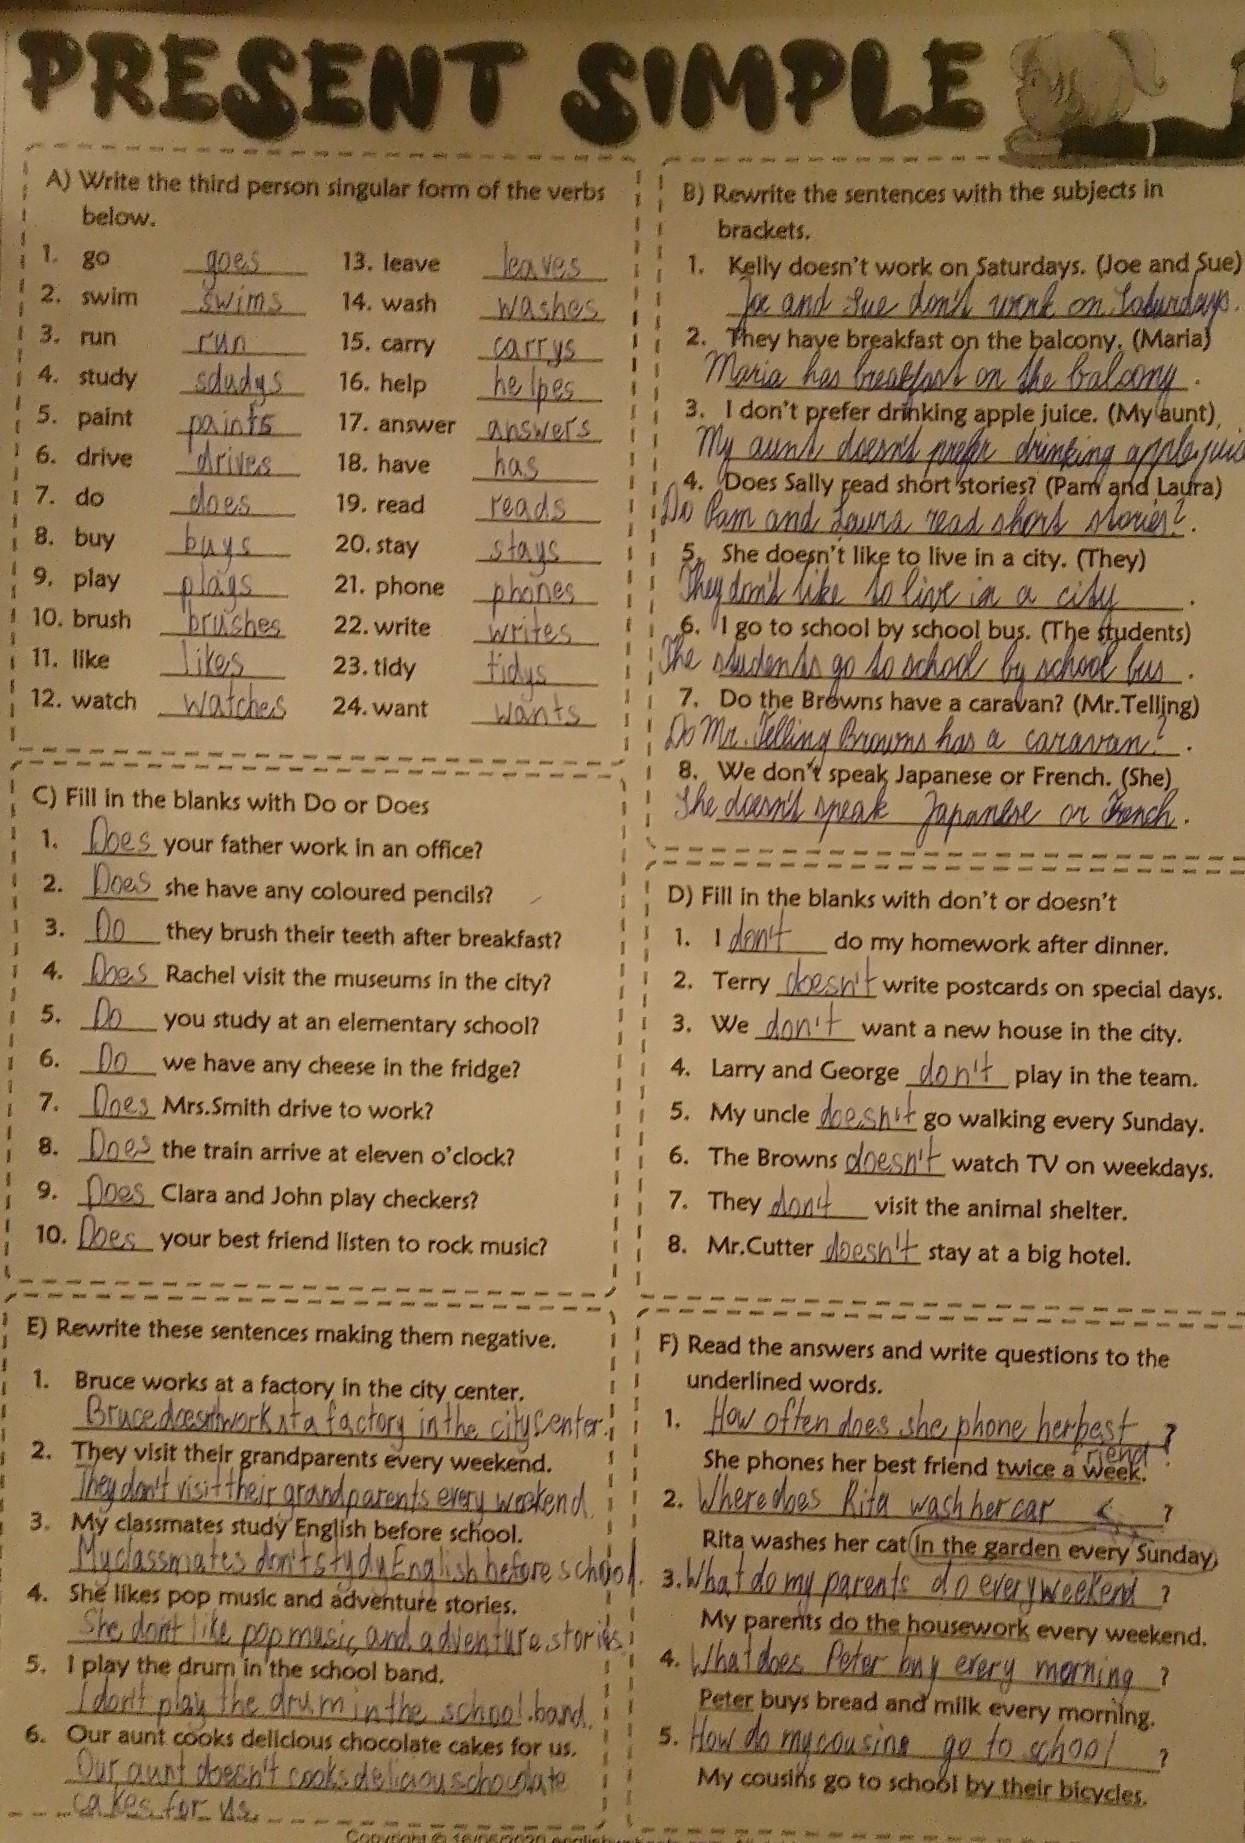 PRESENT SIMPLE
A) Write the third person singular form of the verbs
below.
1. go goes 13. leave leaves
2. swim swims 14. wash washes
3. run run 15. carry carrys
4. study sdudys 16. help helpes
5. paint paints 17. answer answers
6. drive drives 18. have has
7. do does 19. read reads
8. buy buys 20. stay stays
9. play plays 21. phone phones
10. brush brushes 22. write writes
11. like likes 23. tidy tidys
12. watch watches 24. want wants
B) Rewrite the sentences with the subjects in
brackets.
1. Kelly doesn't work on Saturdays. (Joe and Sue)
Joe and Sue don't work on Saturdays.
2. They have breakfast on the balcony. (Maria)
Maria has breakfast on the balcony.
3. I don't prefer drinking apple juice. (My aunt)
My aunt doesn't prefer drinking apple juic
4. Does Sally read short stories? (Pam and Laura)
Do Pam and Laura read short stories?.
5. She doesn't like to live in a city. (They)
They don't like to live in a city.
6. I go to school by school bus. (The students)
The students go to school by school bus.
7. Do the Browns have a caravan? (Mr.Telling)
Do Mr. Telling Browns has a caravan?.
8. We don't speak Japanese or French. (She)
She doesn't speak Japanese or French.
C) Fill in the blanks with Do or Does
1. Does your father work in an office?
2. Does she have any coloured pencils?
3. Do they brush their teeth after breakfast?
4. Does Rachel visit the museums in the city?
5. Do you study at an elementary school?
6. Do we have any cheese in the fridge?
7. Does Mrs.Smith drive to work?
8. Does the train arrive at eleven o'clock?
9. Does Clara and John play checkers?
10. Does your best friend listen to rock music?
D) Fill in the blanks with don't or doesn't
1. I don't do my homework after dinner.
2. Terry doesn't write postcards on special days.
3. We don't want a new house in the city.
4. Larry and George don't play in the team.
5. My uncle doesn't go walking every Sunday.
6. The Browns doesn't watch TV on weekdays.
7. They don't visit the animal shelter.
8. Mr.Cutter doesn't stay at a big hotel.
E) Rewrite these sentences making them negative.
1. Bruce works at a factory in the city center.
Bruce doesn't work at a factory in the city center.
2. They visit their grandparents every weekend.
They don't visit their grandparents every weekend.
3. My classmates study English before school.
My classmates don't study English before school.
4. She likes pop music and adventure stories.
She don't like pop music and adventure stories.
5. I play the drum in the school band.
I don't play the drum in the school band.
6. Our aunt cooks delicious chocolate cakes for us.
Our aunt doesn't cooks delicious chocolate
cakes for us.
F) Read the answers and write questions to the
underlined words.
1. How often does she phone her best ?
friend
She phones her best friend twice a week.
2. Where does Rita wash her car ?
Rita washes her cat in the garden every Sunday.
3. What do my parents do every weekend ?
My parents do the housework every weekend.
4. What does Peter buy every morning ?
Peter buys bread and milk every morning.
5. How do my cousins go to school ?
My cousins go to school by their bicycles.